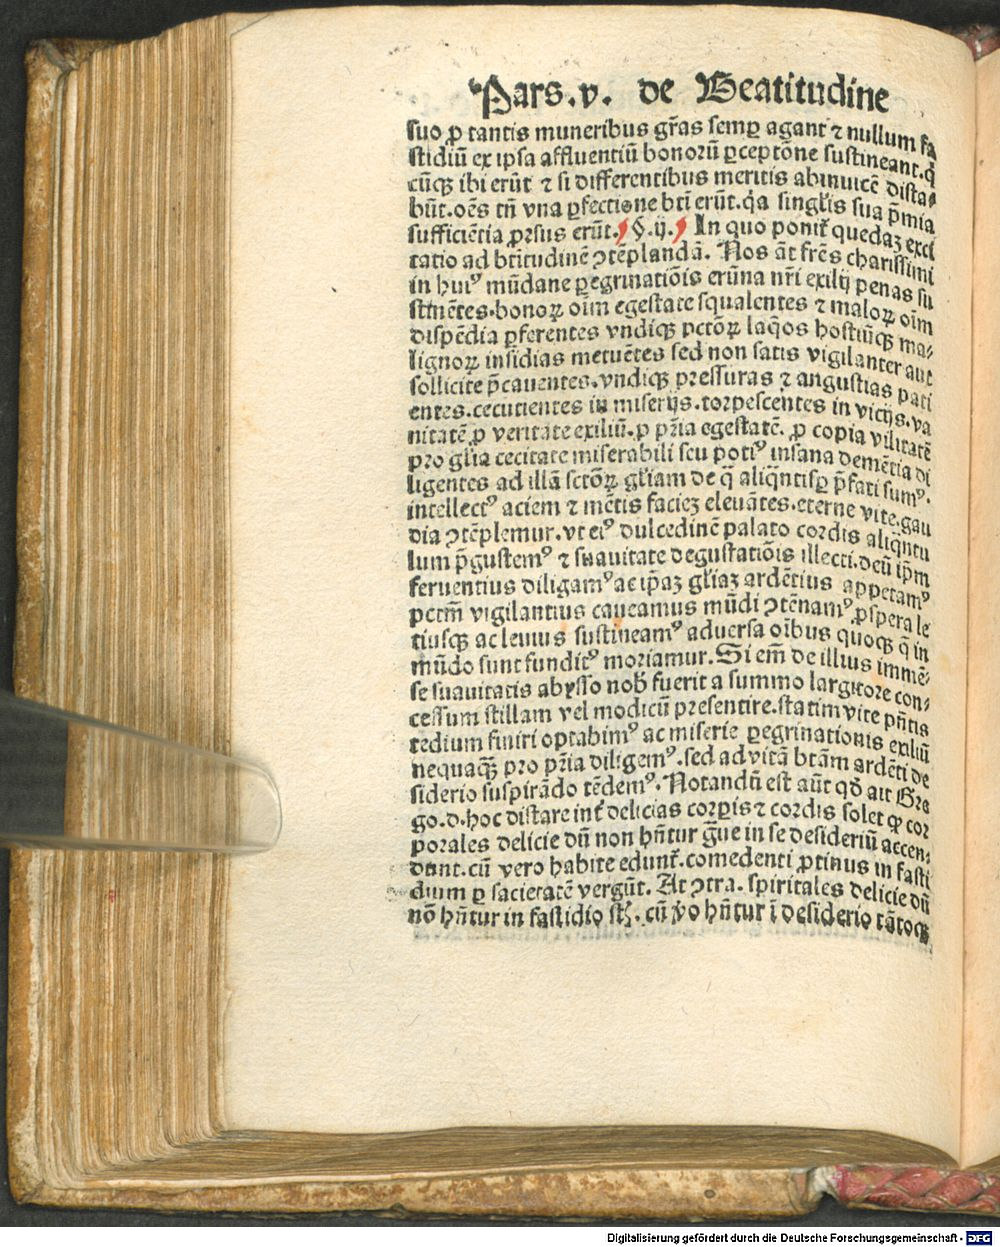 Pars.v. de Beatitudine
suo ꝓ tantis muneribus gr̃as semꝑ agant ⁊ nullum fa
stidiũ ex ipsa affluentiũ bonorũ ꝑceptõne sustineant.q̃
cũqꝫ ibi erũt ⁊ si differentibus meritis abinuicẽ dista⸗
bũt.oẽs tñ vna ꝑfectione bti erũt.q̃a singl̃is sua p̃mia
sufficiẽtia ꝓrsus erũt. §.ij. In quo ponit̃ quedaꝫ exci
tatio ad btĩtudinẽ ꝯtẽplandã. Nos ãt fr̃es charissimi
in huiꝰ mũdane ꝑegrinatiõis erũna nr̃i exilij penas su
stinẽtes.bonoꝝ oĩm egestate squalentes ⁊ maloꝝ oĩm
dispẽdia ꝑferentes vndiqꝫ pctõꝝ laq̃os hostiũqꝫ ma⸗
lignoꝝ insidias metuẽtes sed non satis vigilanter aut
sollicite p̃cauentes.vndiqꝫ pressuras ⁊ angustias pati
entes.cecutientes in miserijs.torpescentes in vicijs.va
nitatẽ ꝓ veritate exiliũ.ꝓ pr̃ia egestatẽ. ꝓ copia vilitatẽ
pro gl̃ia cecitate miserabili seu potiꝰ insana demẽtia di
ligentes ad illã sctõꝝ gl̃iam de q̃ aliq̃ntisꝑ p̃fati sumꝰ.
intellectꝰ aciem ⁊ mẽtis facieꝫ eleuãtes.eterne vite.gau
dia ꝯtẽplemur.vt eiꝰ dulcedinẽ palato cordis aliq̃ntu
lum p̃gustemꝰ ⁊ suauitate degustatiõis illecti.deũ ip̃m
feruentius diligamꝰ ac ip̃aꝫ gl̃iaꝫ ardẽtius appetamꝰ
pctm̃ vigilantius caueamus mũdi ꝯtẽnamꝰ ꝓspera le
tiusqꝫ ac leuius sustineamꝰ aduersa oĩbus quoqꝫ q̃ in
mũdo sunt funditꝰ moriamur. Si em̃ de illius immẽ⸗
se suauitatis abysso nob̃ fuerit a summo largitore con⸗
cessum stillam vel modicũ presentire.statim vite pñtis
tedium finiri optabimꝰ ac miserie ꝑegrinationis exiliũ
nequaqꝫ̃ pro pr̃ia diligemꝰ.sed ad vitã btãm ardẽti de
siderio suspirãdo tẽdemꝰ. Notandũ est aũt qd̃ ait Gre
go.d.hoc distare int̃ delicias corꝑis ⁊ cordis solet ꝙ cor
porales delicie dũ non hñtur g̃ue in se desideriũ accen⸗
dunt.cũ vero habite edunt̃.comedenti ꝓtinus in fasti
dium ꝑ sacietatẽ vergũt. At ꝯtra. spiritales delicie dũ
nõ hñtur in fastidio st̃. cũ ṽo hñtur ĩ desiderio tãtoqꝫ
Digitalisierung gefördert durch die Deutsche Forschungsgemeinschaft - DFG